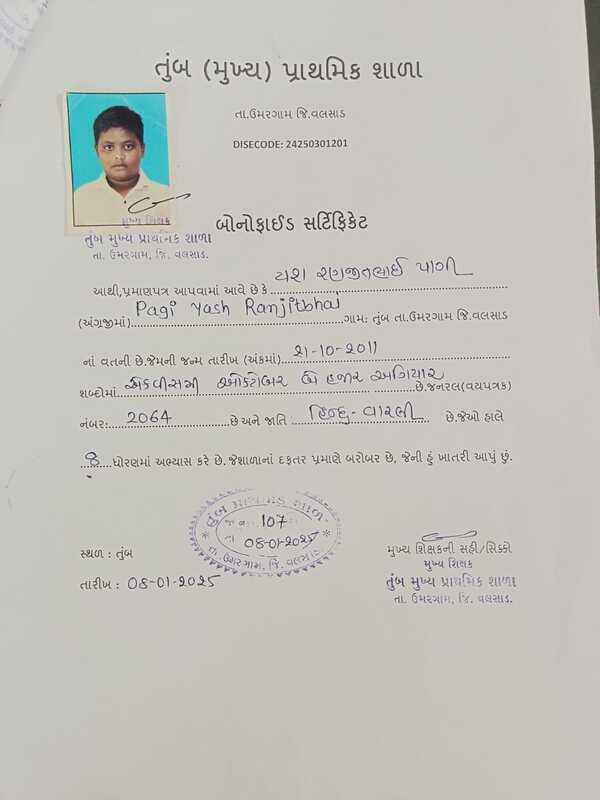 તુંબ (મુખ્ય) પ્રાથમિક શાળા
તા.ઉમરગામ જિ.વલસાડ
DISECODE: 24250301201
મુખ્ય શિક્ષક
તુંબ મુખ્ય પ્રાથમિક શાળા
તા. ઉમરગામ, જિ. વલસાડ.
બોનોફાઈડ સર્ટિફિકેટ
આથી,પ્રમાણપત્ર આપવામાં આવે છે કે યશ રણજીતભાઈ પાગી
(અંગ્રેજીમાં) Pagi Yash Ranjitbhai ગામ: તુંબ તા.ઉમરગામ જિ.વલસાડ
નાં વતની છે.જેમની જન્મ તારીખ (અંકમાં) 21-10-2011
શબ્દોમાં એકવીસમી ઓક્ટોબર બે હજાર અગિયાર છે.જનરલ(વયપત્રક)
નંબર: 2064 છે અને જાતિ : હિન્દુ-વારલી છે.જેઓ હાલે
8 ધોરણમાં અભ્યાસ કરે છે. જેશાળાનાં દફતર પ્રમાણે બરોબર છે, જેની હું ખાતરી આપું છું.
તુંબ મુખ્ય શાળા
જા.ન. 107
તા 08-01-2025
તા. ઉમરગામ, જિ. વલસાડ
સ્થળ : તુંબ
તારીખ : 08-01-2025
મુખ્ય શિક્ષકની સહી/સિક્કો
મુખ્ય શિક્ષક
તુંબ મુખ્ય પ્રાથમિક શાળા
તા. ઉમરગામ, જિ. વલસાડ.